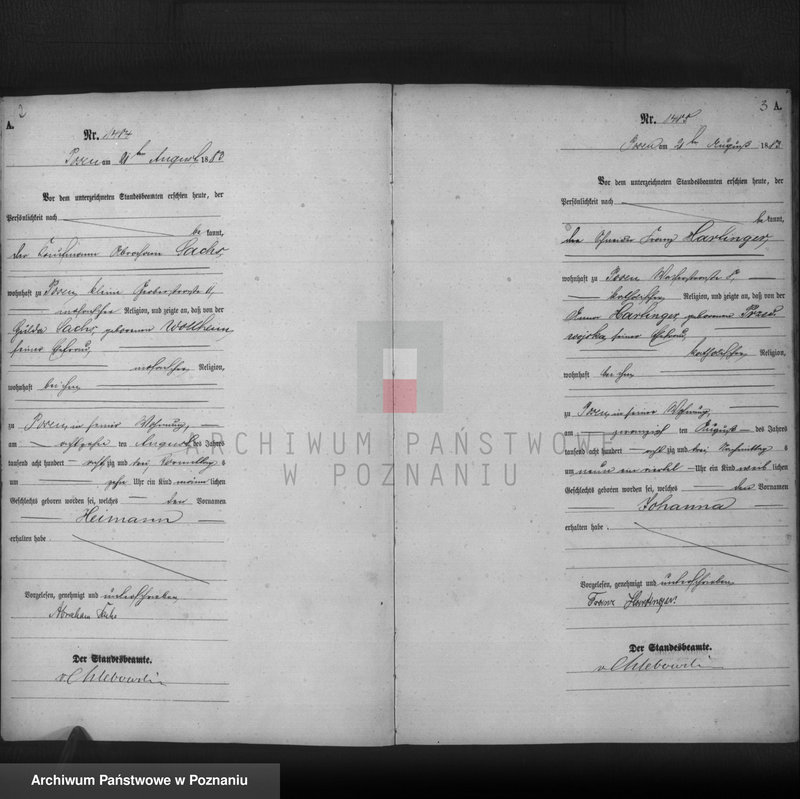 2
A.
Nr. 1484
Posen am 21ten August 1883
Vor dem unterzeichneten Standesbeamten erschien heute, der
Persönlichkeit nach
be kannt,
der Kaufmann Abraham Sachs,
wohnhaft zu Posen kleine Gerberstraße
mosaischer Religion, und zeigte an, daß von der
Hulda Sachs geborenen Wollheim,
seiner Ehefrau,
mosaischer Religion,
wohnhaft bei ihm,
zu Posen in seiner Wohnung,
am achtzehn ten August des Jahres
tausend acht hundert acht zig und drei, Vormittags
um zehn Uhr ein Kind männ lichen
Geschlechts geboren worden sei, welches den Vornamen
Heimann
erhalten habe.
Vorgelesen, genehmigt und unterschrieben
Abraham Sachs
Der Standesbeamte.
v. Chlebowski
3 A.
Nr. 1485
Posen am 21ten August 1883
Vor dem unterzeichneten Standesbeamten erschien heute, der
Persönlichkeit nach
be kannt,
der Schneider Franz Hartinger,
wohnhaft zu Posen
katholischer Religion, und zeigte an, daß von der
Hartinger, geborenen
seiner Ehefrau,
katholischer Religion,
wohnhaft bei ihm,
zu Posen in seiner Wohnung,
am zwanzig ten August des Jahres
tausend acht hundert acht zig und drei Nachmittags
um neun ein viertel Uhr ein Kind weib lichen
Geschlechts geboren worden sei, welches den Vornamen
Johanna
erhalten habe.
Vorgelesen, genehmigt und unterschrieben
Franz Hartinger.
Der Standesbeamte.
v. Chlebowski
ARCHIWUM PAŃSTWOWE
W POZNANIU
Archiwum Państwowe w Poznaniu